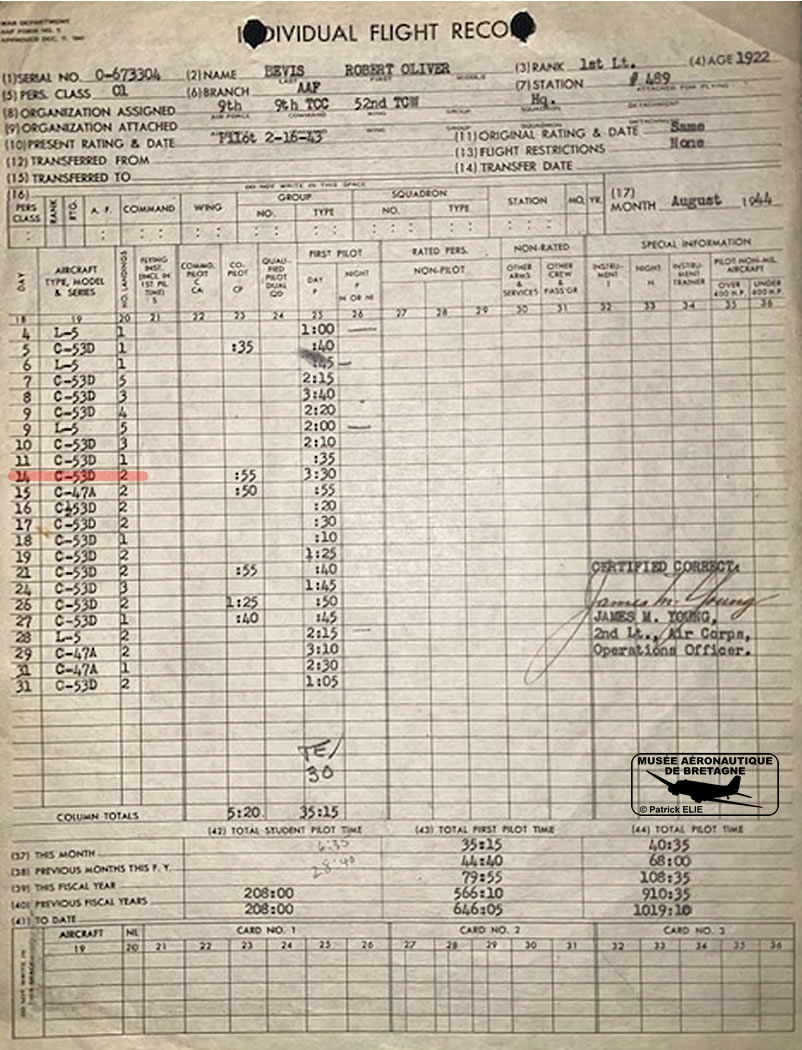 WAR DEPARTMENT
AAF FORM NO. 5
APPROVED DEC. 7, 1941
INDIVIDUAL FLIGHT RECORD
(1) SERIAL NO. 0-673304 (2) NAME BEVIS ROBERT OLIVER (3) RANK 1st Lt. (4) AGE 1922
LAST FIRST MIDDLE
(5) PERS. CLASS 01 (6) BRANCH AAF (7) STATION # 489
ATTACHED FOR FLYING
(8) ORGANIZATION ASSIGNED 9th 9th TCC 52nd TCW Hq.
AIR FORCE COMMAND WING GROUP SQUADRON DETACHMENT
(9) ORGANIZATION ATTACHED
WING GROUP SQUADRON DETACHMENT
(10) PRESENT RATING & DATE "Pilot 2-16-43" (11) ORIGINAL RATING & DATE Same
(12) TRANSFERRED FROM (13) FLIGHT RESTRICTIONS None
(15) TRANSFERRED TO (14) TRANSFER DATE
DO NOT WRITE IN THIS SPACE
(16) GROUP SQUADRON (17)
PERS CLASS RANK RTG. A. F. COMMAND WING NO. TYPE NO. TYPE STATION MO. YR. MONTH August 1944
DAY AIRCRAFT TYPE, MODEL & SERIES NO. LANDINGS FLYING INST. (INCL IN 1ST PIL. TIME) S COMMD. PILOT C CA CO-PILOT CP QUALIFIED PILOT DUAL QD FIRST PILOT DAY P NIGHT P N OR NI RATED PERS. NON-PILOT NON-RATED OTHER ARMS & SERVICES OTHER CREW & PASS'GR SPECIAL INFORMATION INSTRUMENT I NIGHT N INSTRUMENT TRAINER PILOT NON-MIL. AIRCRAFT OVER 400 H.P. UNDER 400 H.P.
18 19 20 21 22 23 24 25 26 27 28 29 30 31 32 33 34 35 36
4 L-5 1 1:00
5 C-53D 1 :35 :40
6 L-5 1 :45
7 C-53D 5 2:15
8 C-53D 3 3:40
9 C-53D 4 2:20
9 L-5 5 2:00
10 C-53D 3 2:10
11 C-53D 1 :35
14 C-53D 2 :55 3:30
15 C-47A 2 :50 :55
16 C-53D 2 :20
17 C-53D 2 :30
18 C-53D 1 :10
19 C-53D 2 1:25
21 C-53D 2 :55 :40
24 C-53D 3 1:45
26 C-53D 2 1:25 :50
27 C-53D 1 :40 :45
28 L-5 2 2:15
29 C-47A 2 3:10
31 C-47A 1 2:30
31 C-53D 2 1:05
CERTIFIED CORRECT:
James M. Young
JAMES M. YOUNG,
2nd Lt., Air Corps,
Operations Officer.
TE/
30
MUSÉE AÉRONAUTIQUE
DE BRETAGNE
© Patrick ELIE
COLUMN TOTALS 5:20 35:15
(42) TOTAL STUDENT PILOT TIME (43) TOTAL FIRST PILOT TIME (44) TOTAL PILOT TIME
(37) THIS MONTH 6:35 35:15 40:35
(38) PREVIOUS MONTHS THIS F. Y. 28:40 44:40 68:00
(39) THIS FISCAL YEAR 79:55 108:35
(40) PREVIOUS FISCAL YEARS 208:00 566:10 910:35
(41) TO DATE 208:00 646:05 1019:10
DO NOT WRITE IN THIS SPACE
AIRCRAFT NL CARD NO. 1 CARD NO. 2 CARD NO. 3
19 20 21 22 23 24 25 26 27 28 29 30 31 32 33 34 35 36